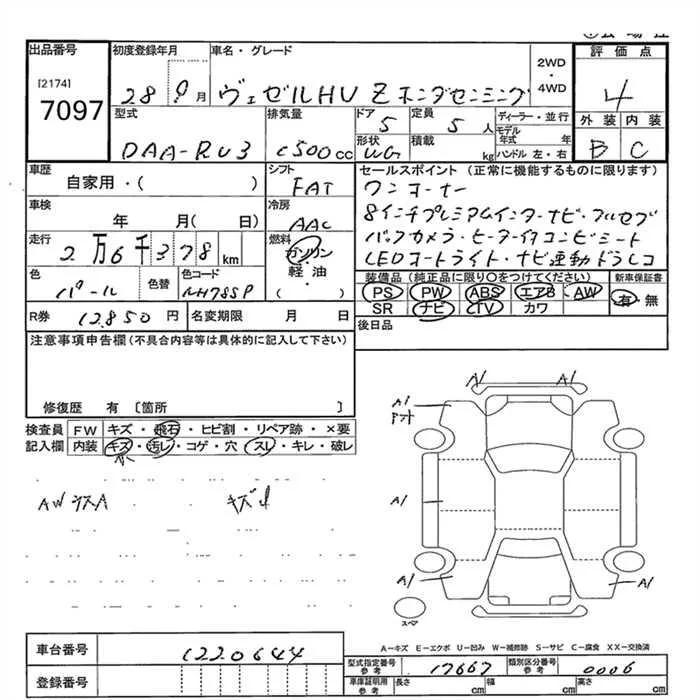 出品番号 初度登録年月 車名・グレード 評価点
[2174]
7097
28 9月 ヴェゼルHV Z ホンダセンシング
2WD
・
4WD
4
型式 排気量 ドア 定員 ディーラー・並行 外装 内装
DAA-RU3 1500cc 5 5人 モデル年式 年
形状 WG 積載 kg ハンドル 左・右 B C
車歴 シフト セールスポイント (正常に機能するものに限ります)
自家用・( ) FAT ワンオーナー
車検 冷房 8インチプレミアムインターナビ・フルセグ
年 月(日) AAC バックカメラ・ヒーター付コンビシート
走行 燃料 LEDオートライト・ナビ連動ドラレコ
2万6千378km ガソリン
軽油・
( )
色 色替 色コード 装備品 (純正品に限り○をつけてください) 新車保証書
パール NH788P PS PW ABS エアB AW 有・無
SR ナビ TV カワ
R券 12850円 名変期限 月 日 後日品
注意事項申告欄(不具合内容等は具体的に記入して下さい)
修復歴 有 〔箇所 〕
検査員 FW キズ・飛石・ヒビ割・リペア跡・×要
記入欄 内装 キズ・汚レ・コゲ・穴・スレ・キレ・破レ
A1 A1
A1
A1
A1 A1
スペア
A-キズ E-エクボ U-凹み W-補修跡 S-サビ C-腐食 XX-交換済
車台番号 1220644
型式指定番号 参考 17667 類別区分番号 参考 0006
登録番号 車庫証明用 参考 長さ cm 幅 cm 高さ cm